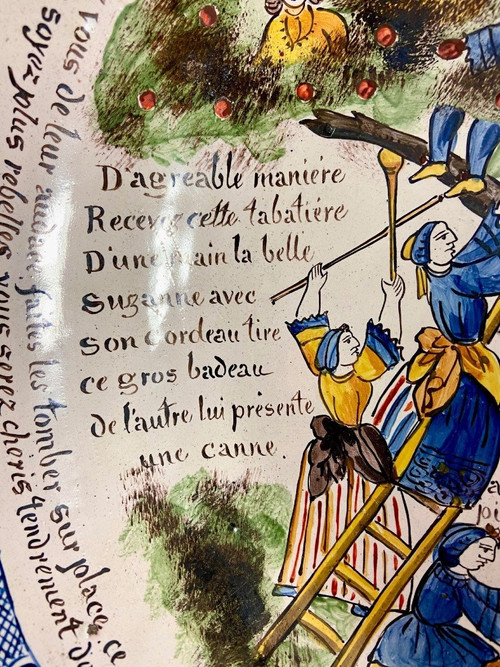 D'agreable maniére
Recevez cette tabatiére
D'une main la belle
Suzanne avec
son cordeau tire
ce gros badeau
de l'autre lui présente
une canne.
vous de leur audace, faites les tomber sur place, ce
soyez plus rebelles vous serez cheris tendrement